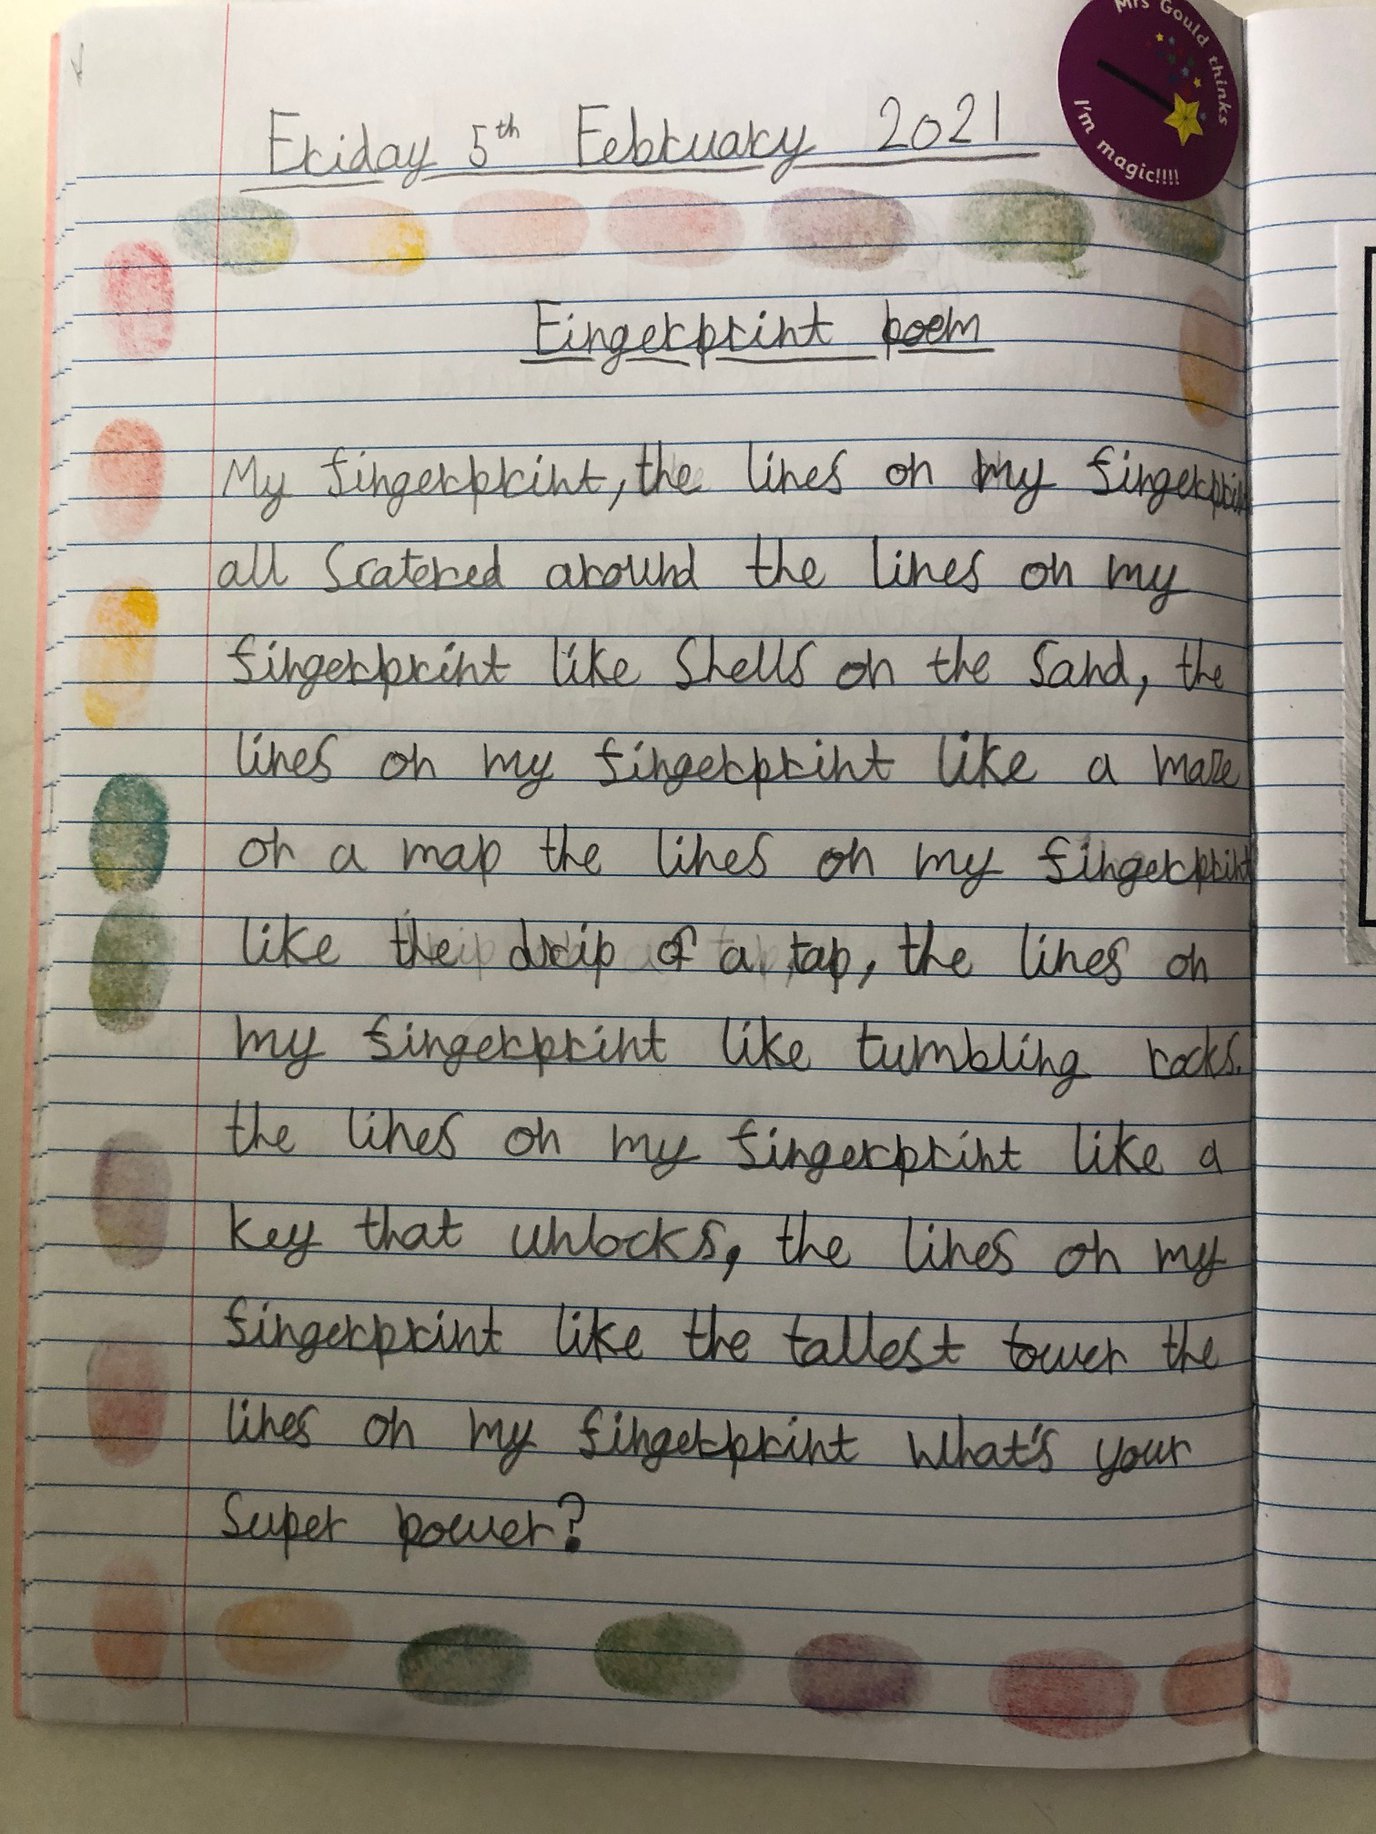 Mrs Gould thinks
I'm magic!!!!
Friday 5th February 2021
Fingerprint poem
My fingerprint, the lines on my fingerprint
all scatered around the lines on my
fingerprint like shells on the sand, the
lines on my fingerprint like a maze
on a map the lines on my fingerprint
like the drip of a tap, the lines on
my fingerprint like tumbling rocks.
the lines on my fingerprint like a
key that unlocks, the lines on my
fingerprint like the tallest tower the
lines on my fingerprint what's your
super power?